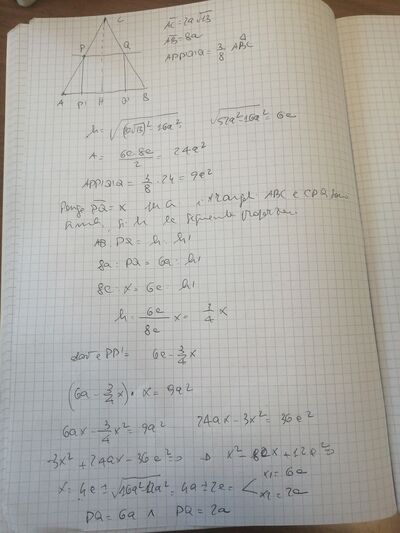 C
AC=2a√13
AB=8a
P Q
APP'Q'Q = 3/8 ABC
A P' H Q' B
h = √(2a√13)²-16a²= √52a²-16a² = 6a
A = 6a·8a/2 = 24a²
APP'Q'Q = 3/8 · 24 = 9a²
Pongo PQ = x triangoli ABC e CPQ sono
simili, si ha la seguente proporzione
AB : PQ = h : h'
8a : PQ = 6a : h'
8a : x = 6a : h'
h = 6a/8a x = 3/4 x
PP' = 6a - 3/4x
(6a - 3/4x) · x = 9a²
6ax - 3/4x² = 9a² 24ax - 3x² = 36a²
-3x² + 24ax - 36a² = 0 x² - 8ax + 12a² = 0
x = 4a ± √16a²-12a² = 4a ± 2a = x1 = 6a
x2 = 2a
PQ = 6a ∧ PQ = 2a